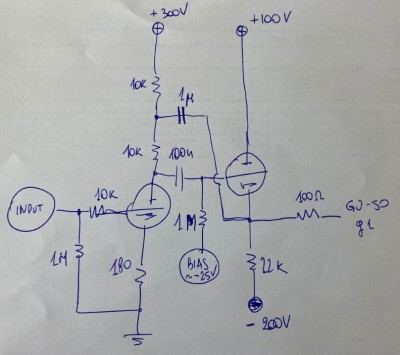 +300V
+100V
10K
1µ
10K
100n
10K
INPUT
1M
100Ω
GU-50
g1
1M
180
BIAS
~-25V
22K
-200V